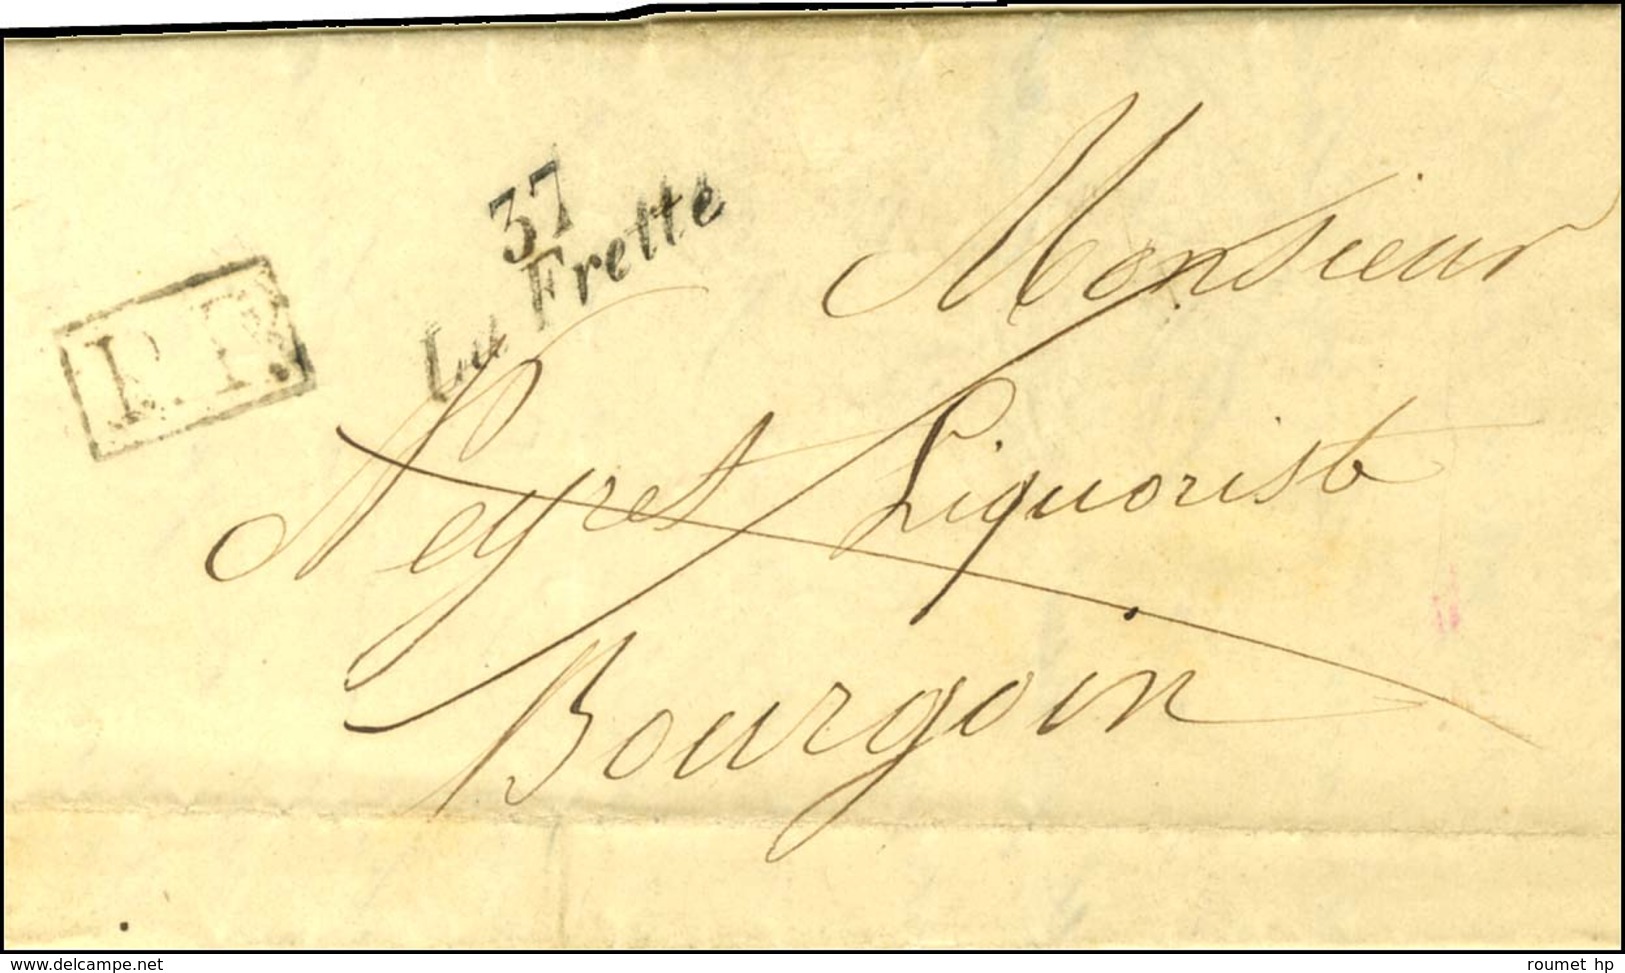 37
La Frette
P.P.
Monsieur
Neyret Liquoriste
Bourgoin
www.delcampe.net
roumet hp